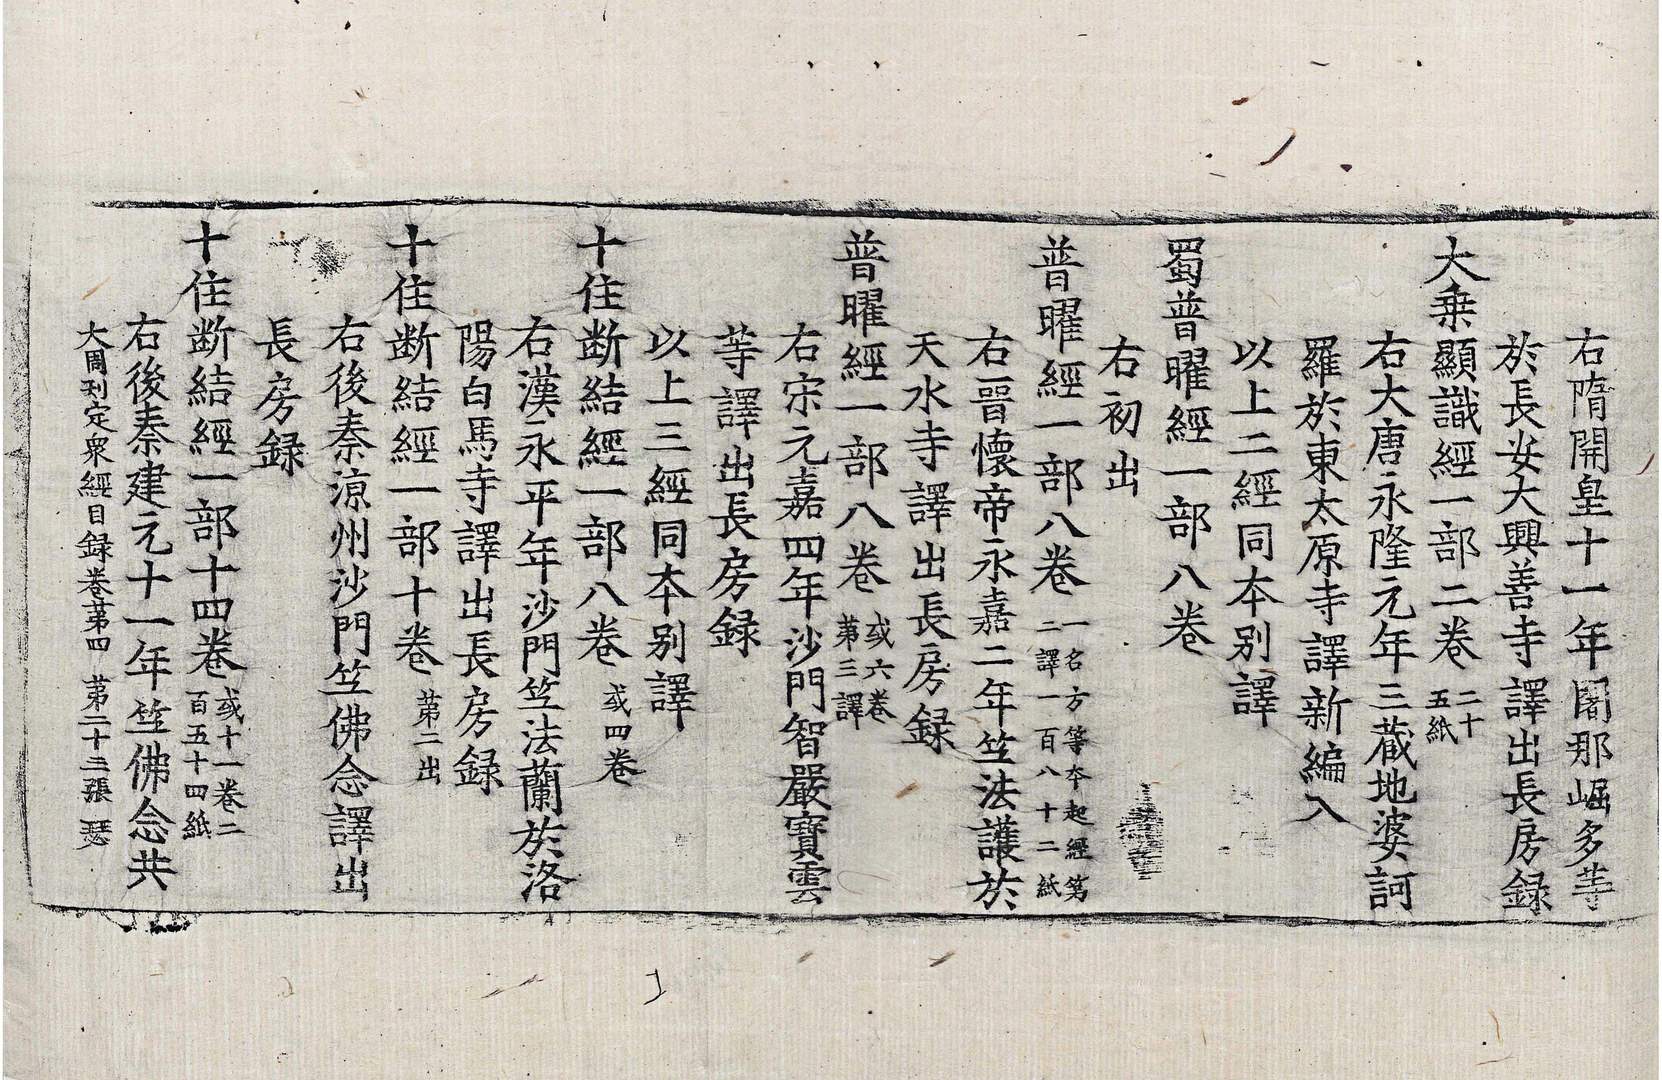 右隋開皇十一年闍那崛多等
於長安大興善寺譯出長房録
大乗顯識經一部二卷二十五紙
右大唐永隆元年三藏地婆訶
羅於東太原寺譯新編入
以上二經同本别譯
蜀普曜經一部八卷
右初出
普曜經一部八卷一名方等本起經第二譯一百八十二紙
右晋懷帝永嘉二年竺法護於
天水寺譯出長房録
普曜經一部八卷或六卷第三譯
右宋元嘉四年沙門智嚴寶雲
等譯出長房録
以上三經同本别譯
十住断結經一部八卷或四卷
右漢永平年沙門竺法蘭於洛
陽白馬寺譯出長房録
十住断結經一部十卷第二出
右後秦涼州沙門竺佛念譯出
長房録
十住断結經一部十四卷或十一卷二百五十四紙
右後秦建元十一年竺佛念共
大周刊定衆經目録卷第四 第二十二張 瑟